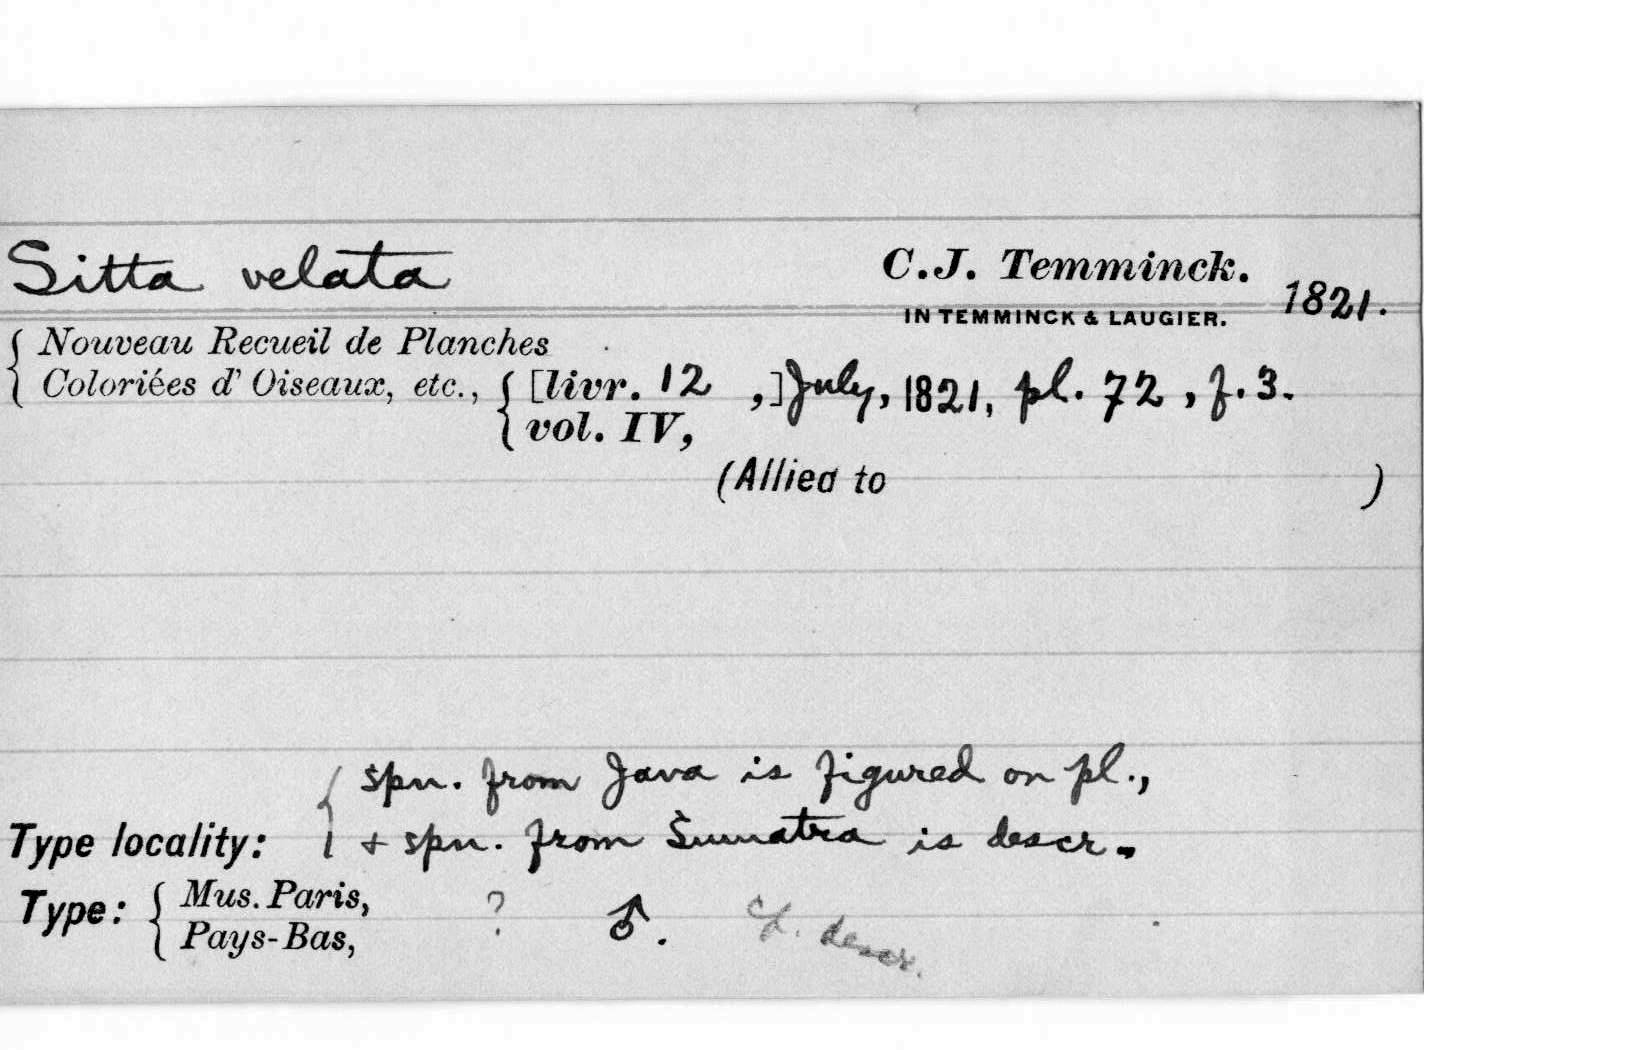 Sitta velata C.J. Temminck. 1821.
IN TEMMINCK & LAUGIER.
Nouveau Recueil de Planches
Coloriées d' Oiseaux, etc., [livr. 12 ,] July, 1821, pl. 72, f. 3.
vol. IV,
(Allied to )
spn. from Java is figured on pl.,
Type locality: + spn. from Sumatra is descr.
Type: Mus. Paris,
Pays-Bas, ? ♂. Cf. descr.